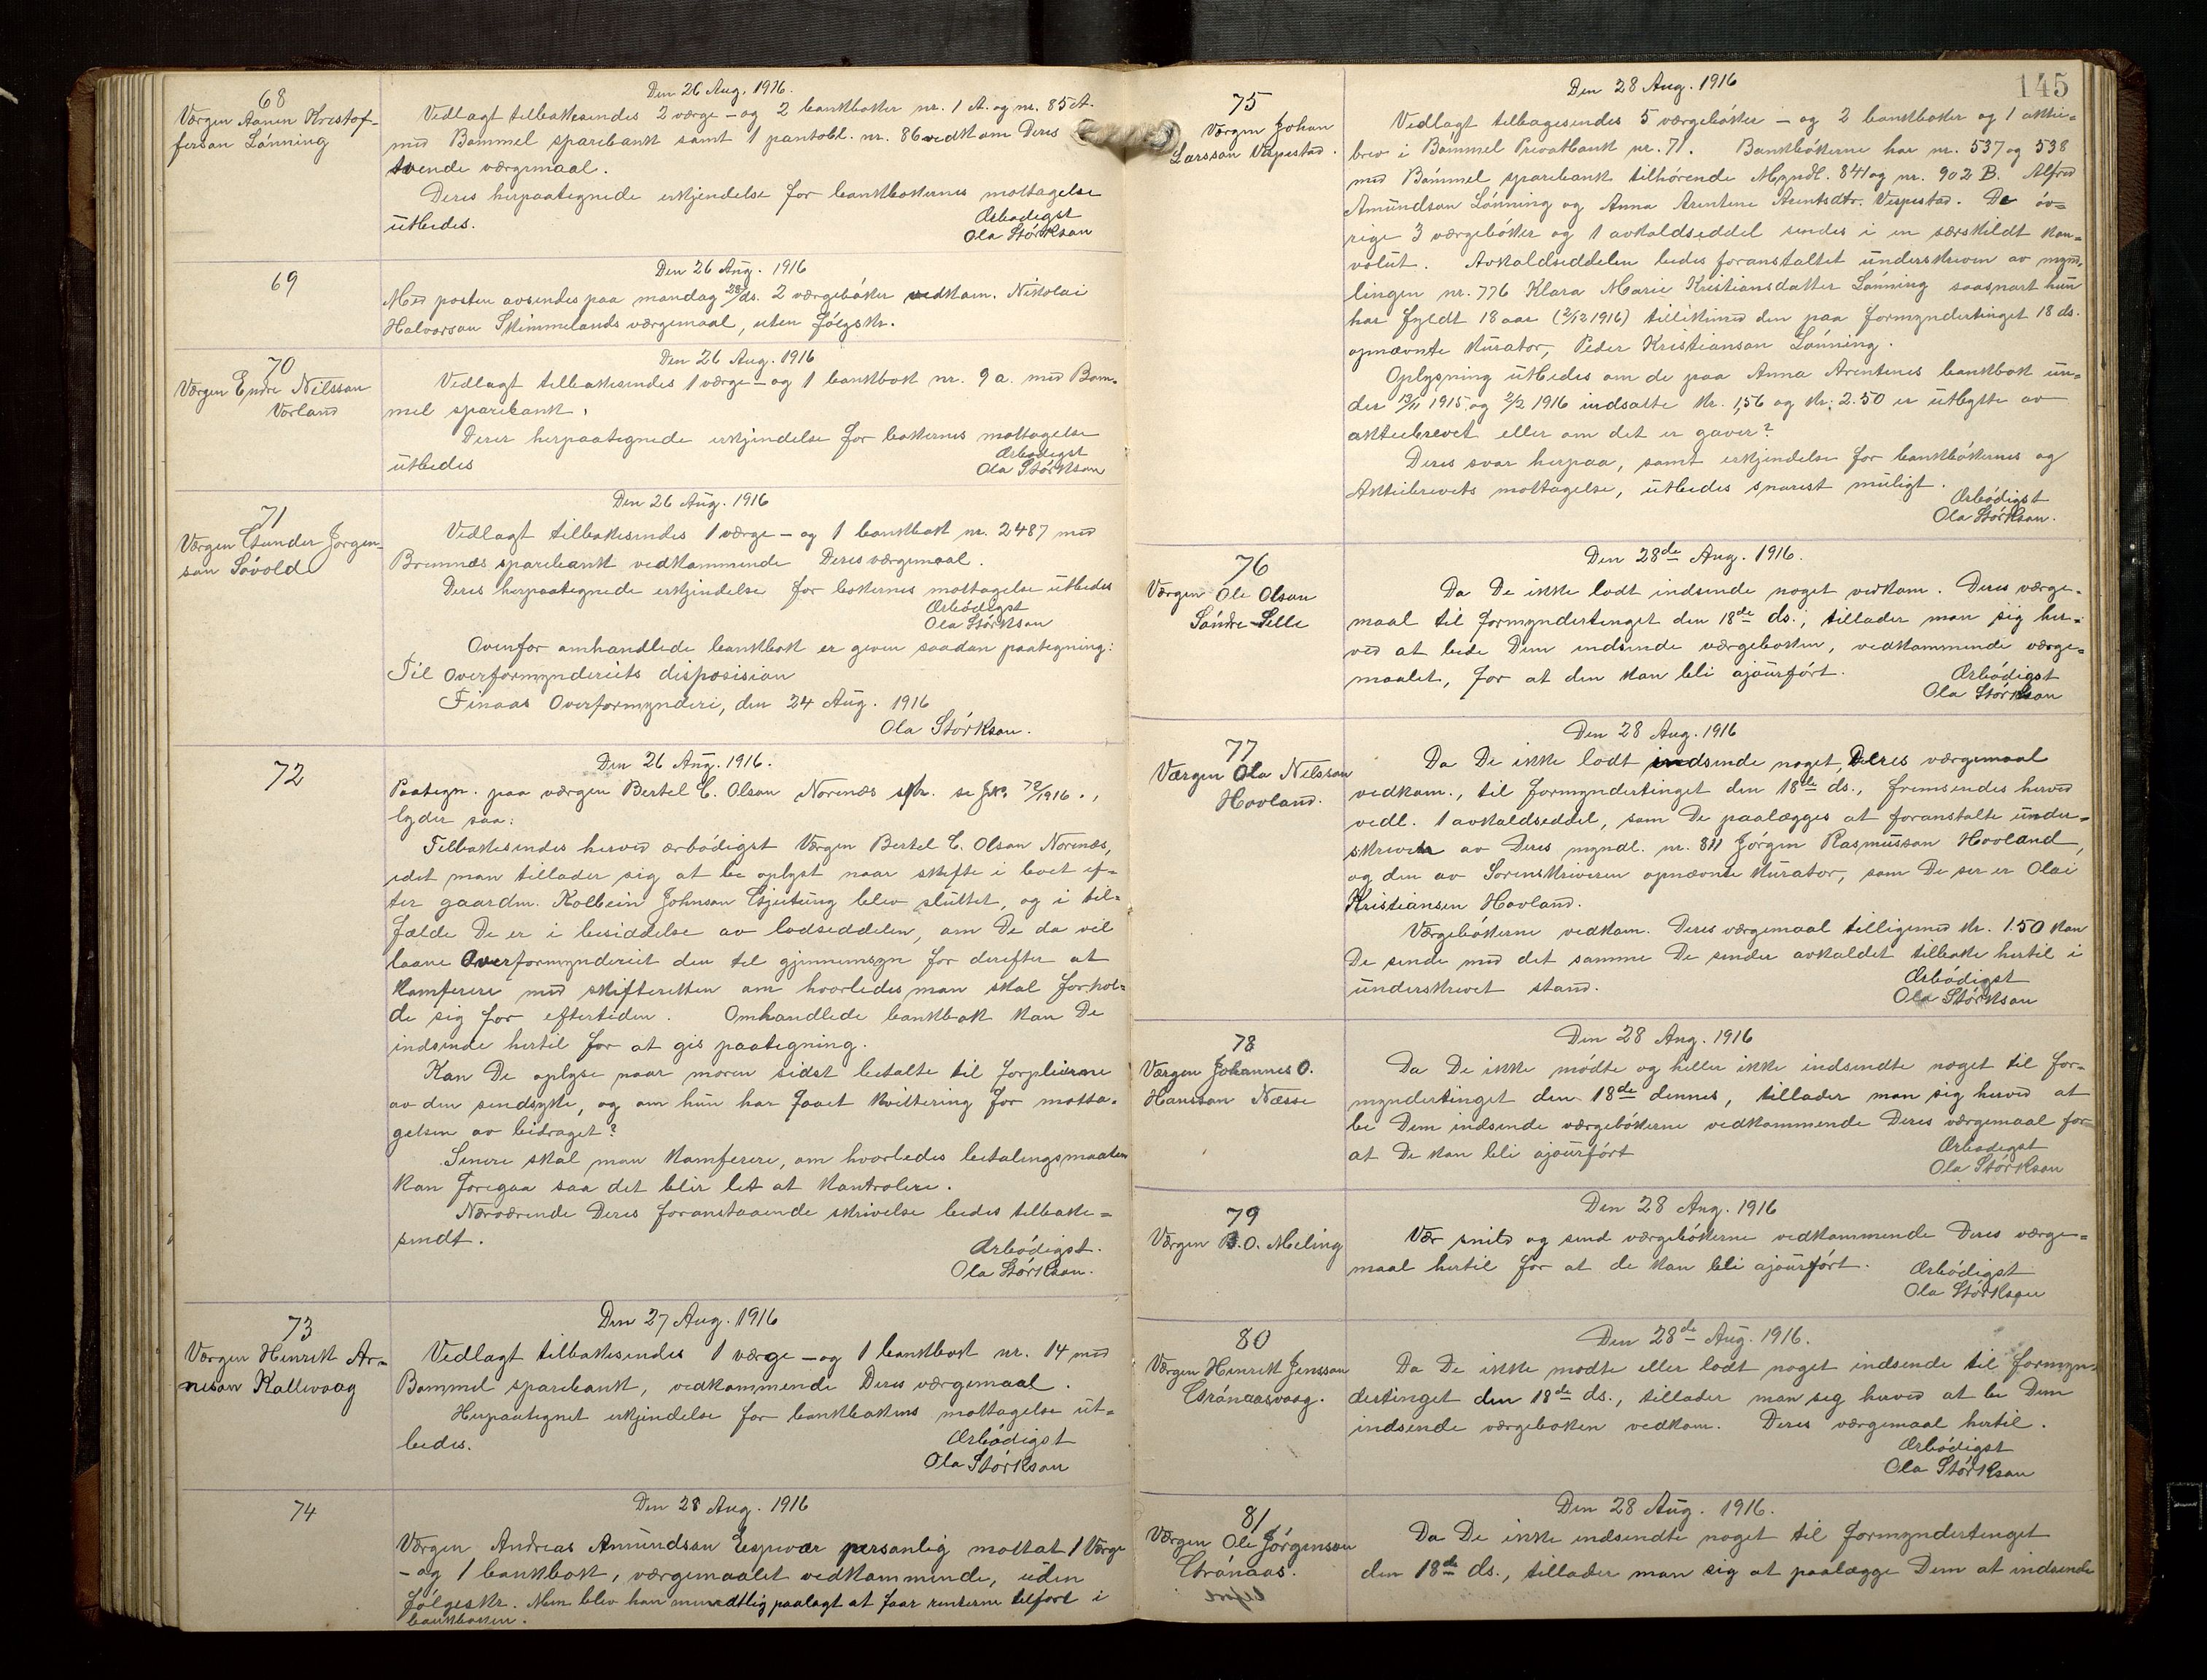 68
Værgen Aanen Kristof-
fersan Lönning
Den 26 Aug. 1916.
Vedlagt tilbakesendes 2 værge - og 2 bankböker nr. 1 A. og nr. 85 A.
med Bømmel sparebank samt 1 pantobl. nr. 86 vedkom Deres
tvende værgemaal.
Deres herpaategnede erkjendelse for bankbökernes mottagelse
utbedes.
Ærbödigst
Ola Störksan
69
Den 26 Aug. 1916
Med posten avsendes paa mandag 28/ds. 2 værgeböker vedkom. Nikolai
Halvorsan Skimmelands værgemaal, uten fölgeskr.
70
Værgen Endre Nilssan
Vorland
Den 26 Aug. 1916
Vedlagt tilbakesendes 1 værge - og 1 bankbok nr. 9 a. med Bøm-
mel sparebank.
Deres herpaategnede erkjendelse for bökernes mottagelse
utbedes
Ærbödigst
Ola Störksan
71
Værgen Gunder Jørgen-
san Sövold
Den 26 Aug. 1916
Vedlagt tilbakesendes 1 værge - og 1 bankbok nr. 2487 med
Bremnes sparebank vedkommende Deres værgemaal.
Deres herpaategnede erkjendelse for bökernes mottagelse utbedes
Ærbödigst
Ola Störksan
Ovenfor omhandlede bankbok er given saadan paategning:
Til Overformynderiets disposision
Finaas Overformynderi, den 24 Aug. 1916
Ola Störksan.
72
Den 26 Aug. 1916.
Paategn. paa værgen Bertel C. Olsan Norenæs skr. se Jnr. 72/1916.,
lyder saa:
Tilbakesendes herved ærbödigst Værgen Bertel C. Olsan Norenæs,
idet man tillader sig at be oplyst naar skifte i boet ef-
ter gaardm. Kolbein Johnsan Gjeitung blev sluttet, og i til-
fælde De er i besiddelse av lodseddelen, om De da vil
laane Overformynderiet den til gjennemsyn for derefter at
konferere med skifteretten om hvorledes man skal forhol-
de sig for eftertiden. Omhandlede bankbok kan De
indsende hertil for at gis paategning.
Kan De oplyse naar moren sidst betalte til forpleierne
av den sindsyke, og om hun har faaet kvittering for motta-
gelsen av bidraget?
Senere skal man konferere, om hvorledes betalingsmaaten
kan foregaa saa det blir let at kontrolere.
Nærværende Deres foranstaaende skrivelse bedes tilbake-
sendt.
Ærbödigst.
Ola Störksan.
73
Værgen Henrik Ar-
nesan Kallevaag
Den 27 Aug. 1916
Vedlagt tilbakesendes 1 værge - og 1 bankbok nr. 14 med
Bømmel sparebank, vedkommende Deres værgemaal.
Herpaategnet erkjendelse for bankbokens mottagelse ut-
bedes.
Ærbödigst
Ola Störksan
74
Den 28 Aug. 1916
Værgen Andreas Amundsan Espevær personlig mottat 1 Værge
- og 1 bankbok, værgemaalet vedkommende, uden
fölgeskr. Men blev han mundtlig paalagt at faar renterne tilfört i
bankboken.
145
75
Værgen Johan
Larssan Vespestad.
Den 28 Aug. 1916
Vedlagt tilbagesendes 5 værgeböker - og 2 bankböker og 1 aktie-
brev i Bømmel Privatbank nr. 71. Bankbökerne har nr. 537 og 538
med Bömmel sparebank tilhörende Myndl. 841 og nr. 902 B. Alfred
Amundsan Lönning og Anna Arentine Arentsdtr. Vespestad. De öv-
rige 3 værgeböker og 1 avkaldseddel sendes i en særskildt kon-
volut. Avkaldseddelen bedes foranstaltet underskreven av mynd-
lingen nr. 776 Klara Marie Kristiansdatter Lönning saasnart hun
har fyldt 18 aar (2/12 1916) tillikemed den paa formyndertinget 18 ds.
opnævnte kurator, Peder Kristiansan Lönning.
Oplysning utbedes om de paa Anna Arentines bankbok un-
der 13/11 1915 og 2/2 1916 indsatte kr. 1,56 og kr. 2.50 er utbytte av
aktiebrevet eller om det er gaver?
Deres svar herpaa, samt erkjendelse for bankbökernes og
Aktiebrevets mottagelse, utbedes snarest muligt.
Ærbödigst
Ola Störksan.
76
Værgen Ole Olsan
Söndre-Selle
Den 28de Aug. 1916.
Da De ikke lodt indsende noget vedkom. Deres værge-
maal til formyndertinget den 18de ds., tillader man sig her-
ved at bede Dem indsende værgeboken, vedkommende værge-
maalet, for at den kan bli ajourfört.
Ærbödigst
Ola Störksan
77
Værgen Ola Nilssan
Hovland.
Den 28 Aug. 1916
Da De ikke lodt indsende noget, Deres værgemaal
vedkom., til formyndertinget den 18de ds., fremsendes herved
vedl. 1 avkaldseddel, som De paalægges at foranstalte under-
skreven av Deres myndl. nr. 811 Jörgen Rasmussan Hovland,
og den av Sorenskriveren opnævnte kurator, som De ser er Olai
Kristiansen Hovland.
Værgebökerne vedkom. Deres værgemaal tilligemed kr. 1.50 kan
De sende med det samme De sender avkaldet tilbake hertil i
underskrevet stand.
Ærbödigst
Ola Störksan
78
Værgen Johannes O.
Hanssan Næsse
Den 28 Aug. 1916
Da De ikke mödte og heller ikke indsendte noget til for-
myndertinget den 18de dennes, tillader man sig herved at
be Dem indsende værgebökerne vedkommende Deres værgemaal for
at De kan bli ajourfört
Ærbödigst
Ola Störksan
79
Værgen B.O. Meling
Den 28 Aug. 1916
Vær snild og send værgebökerne vedkommende Deres værge-
maal hertil for at de kan bli ajourfört.
Ærbödigst
Ola Störksan
80
Værgen Henrik Jenssan
Grönaasvaag.
Den 28de Aug. 1916.
Da De ikke mödte eller lodt noget indsende til formyn-
dertinget den 18de ds., tillader man sig herved at be Dem
indsende værgeboken vedkom. Deres værgemaal hertil.
Ærbödigst
Ola Störksan
81
Værgen Ole Jörgensan
Grönaas.
Den 28 Aug. 1916.
Da De ikke indsendte noget til formyndertinget
den 18de ds., tillader man sig at paalægge Dem at indsende